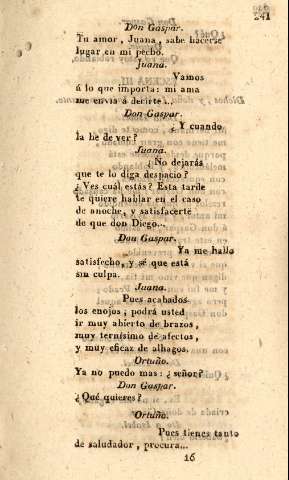 241
Don Gaspar.
Tu amor, Juana, sabe hacerse
lugar en mi pecho.
Juana.
Vamos
á lo que importa: mi ama
me envia á decirte...
Don Gaspar.
¿Y cuando
la he de ver?
Juana.
¿No dejarás
que te lo diga despacio?
¿Ves cuál estás? Esta tarde
te quiere hablar en el caso
de anoche, y satisfacerte
de que don Diego...
Don Gaspar.
Ya me hallo
satisfecho, y sé que está
sin culpa.
Juana.
Pues acabados
los enojos, podrá usted
ir muy abierto de brazos,
muy ternísimo de afectos,
y muy eficaz de alhagos.
Ortuño.
Ya no puedo mas: ¿señor?
Don Gaspar.
¿Qué quieres?
Ortuño.
Pues tienes tanto
de saludador, procura...
16